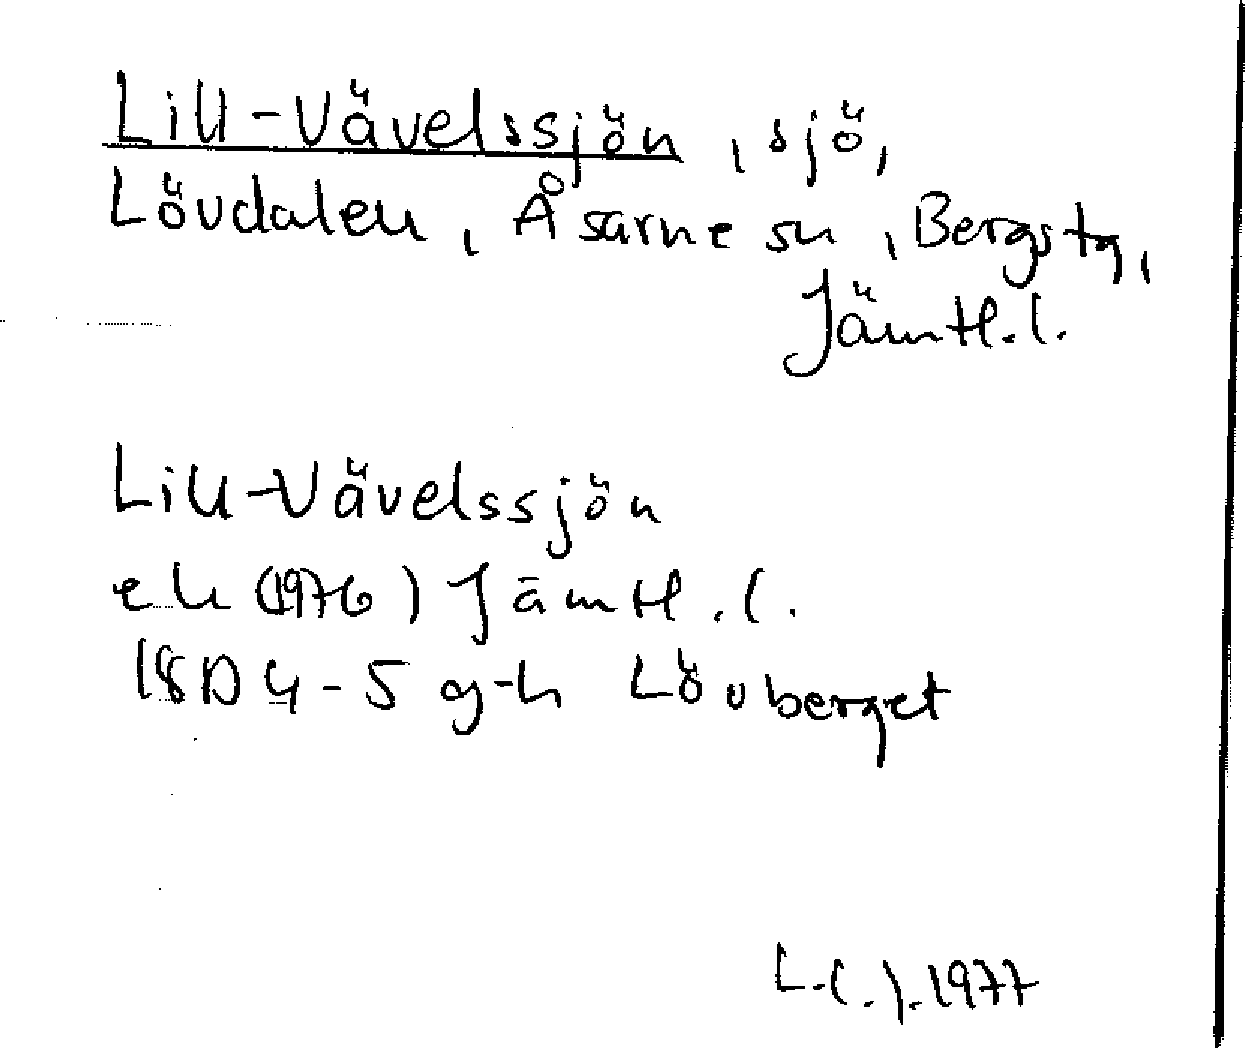 Lill-Vävelssjön, sjö,
Lövdalen, Åsarne sn, Bergs tg,
Jämtl.l.
Lill-Vävelssjön
ek (1976) Jämtl.l.
18D 4-5 g-h Lövberget
L.C.J. 1977